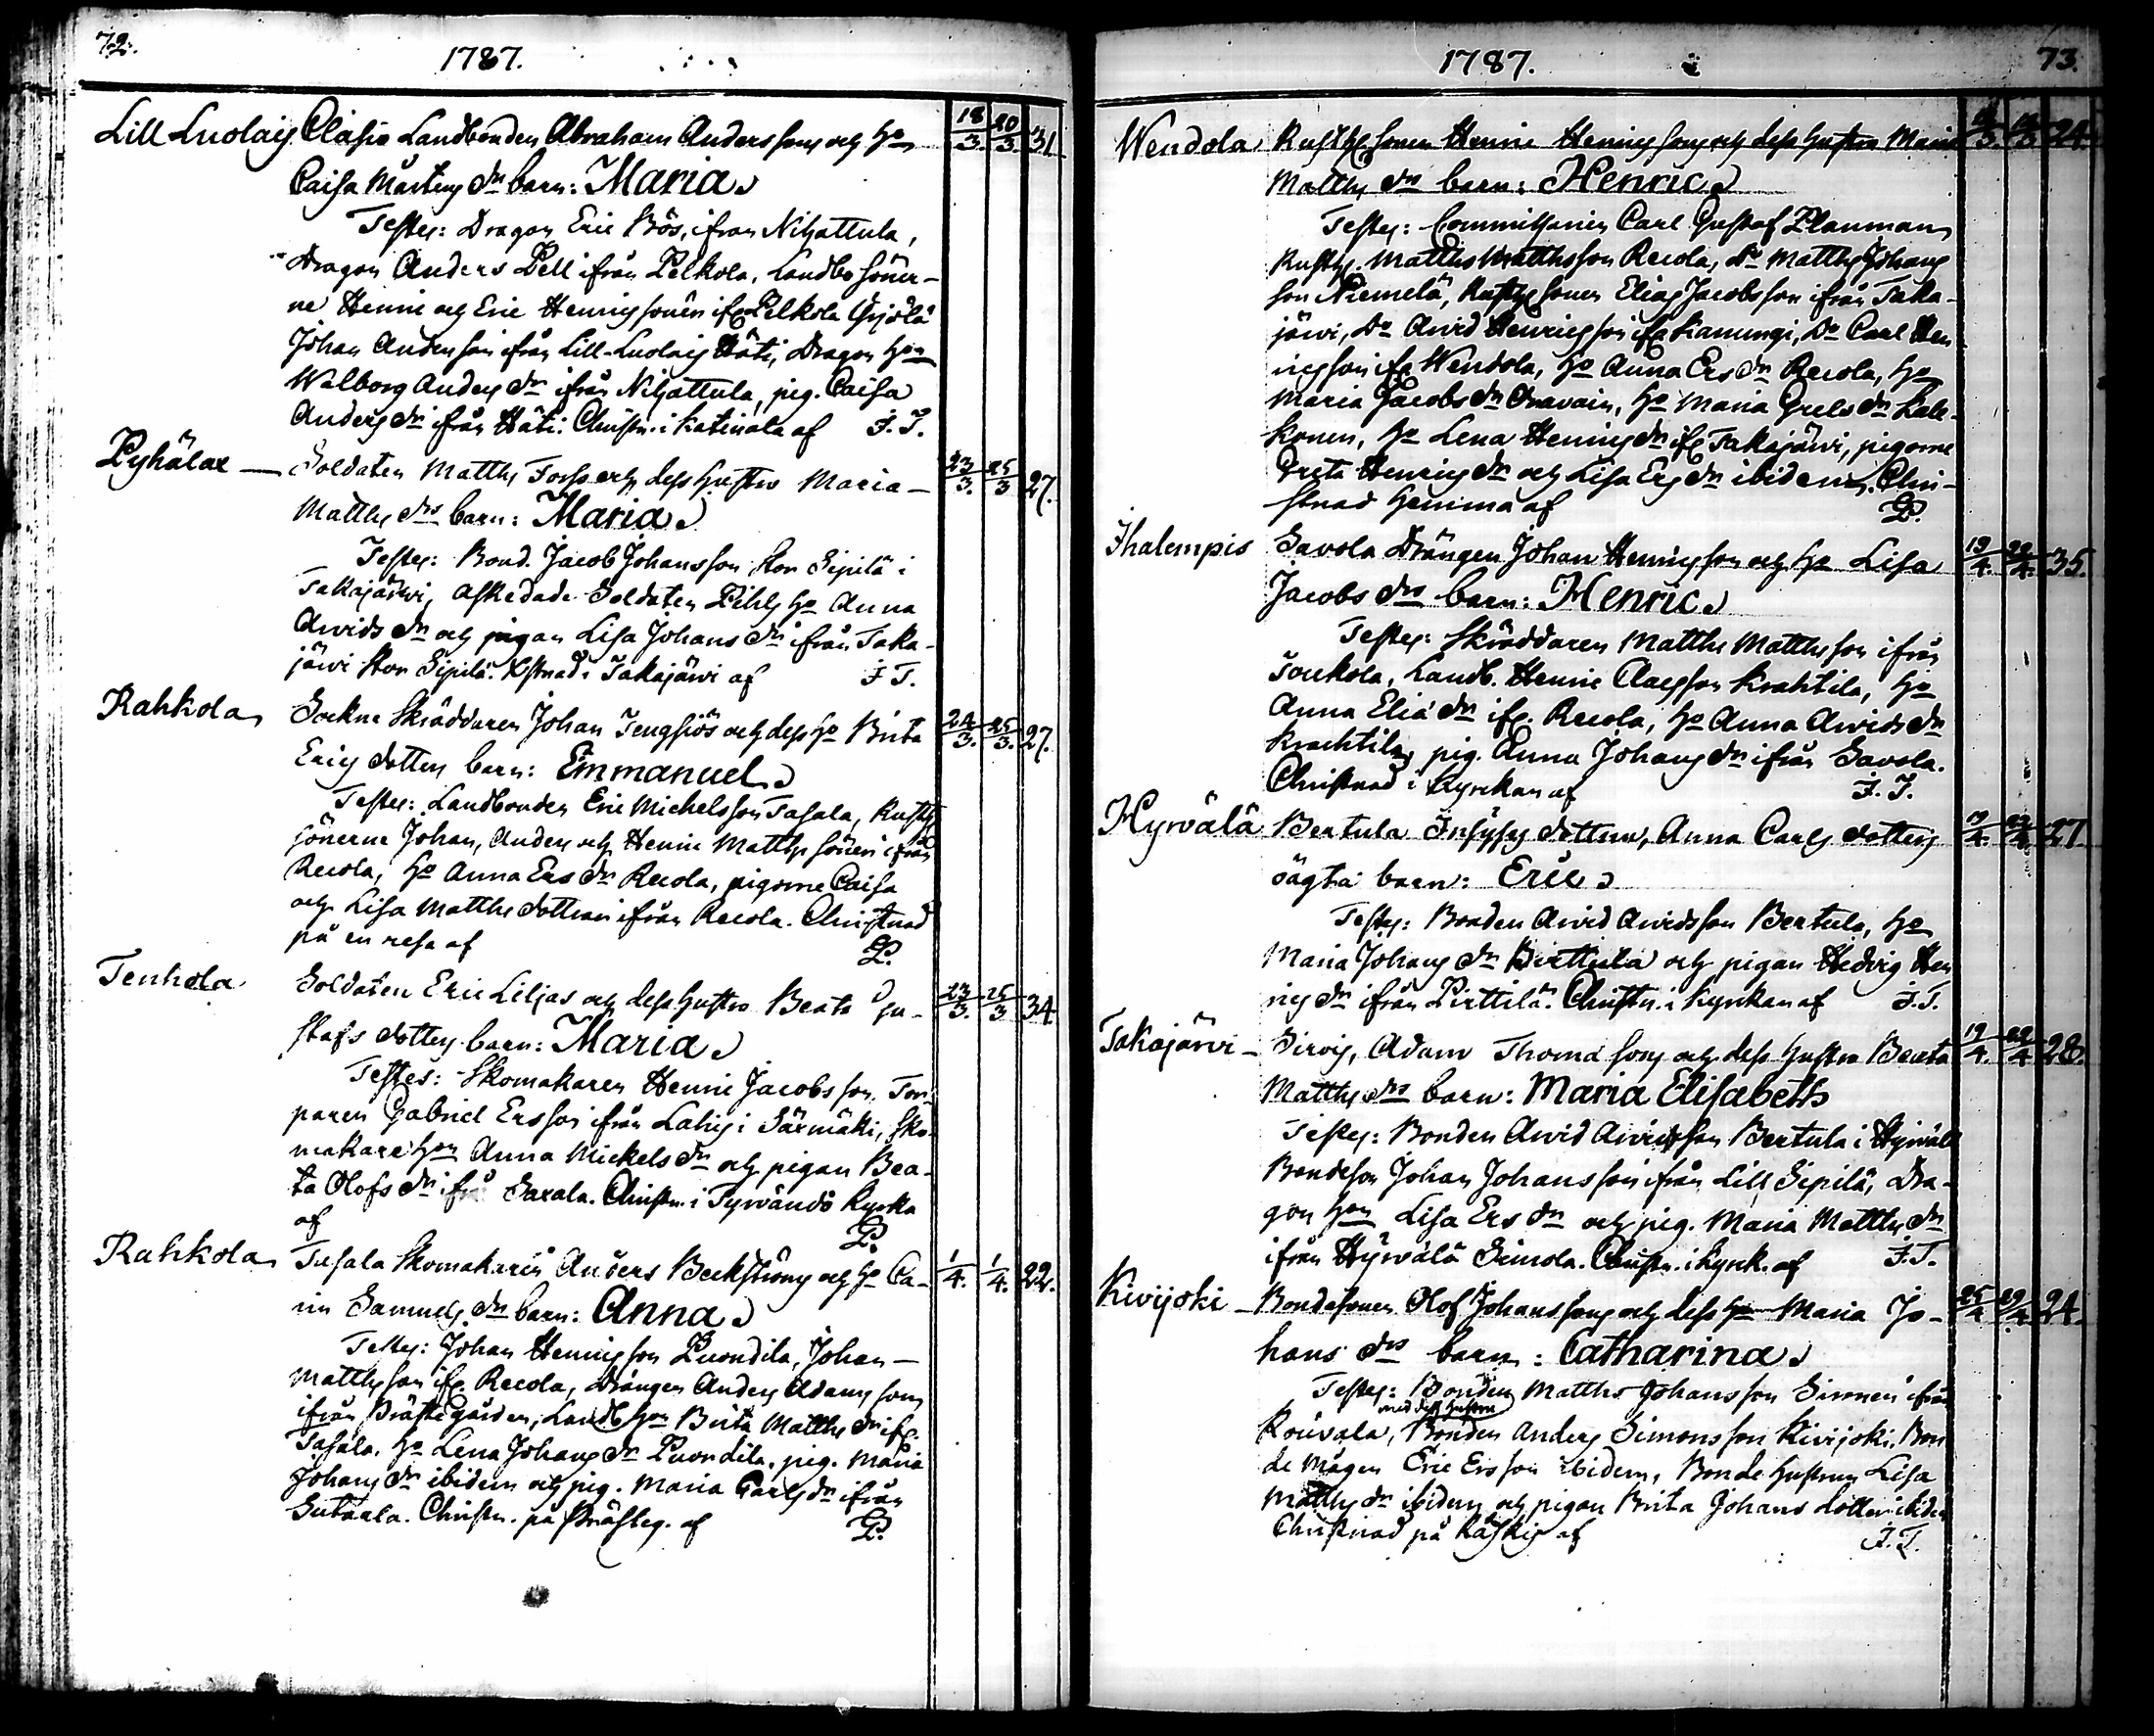 72.
1787.
Lill Luolaig Clasia Landbonden Abraham Anderssons och Ho 18/3. 20/3. 31.
Caisa Mårtens dn barn: Maria
Testes: Dragon Eric Bös, ifrån Nihattula,
Dragon Anders Pell ifrån Pelkola, Landbo söner-
ne Henric och Eric Henrics söner ifr Pelkola
Johan Andersson ifrån Lill-Luolais Häti, Dragon Hon
Walborg Anders dr ifrån Nihattula, pig. Caisa
Anders dr ifrån Häti. Christn. i Katinala af J. T.
Pyhälax — Soldaten Matths Forss och dess hustru Maria — 23/3. 25/3 27.
Matths drs barn: Maria
Testes: Bond. Jacob Johansson Stor Sipilä i
Takajärwi, afskedade Soldaten Pihls Ho Anna
Arvids dr och pigan Lisa Johans dr ifrån Taka-
järwi Stor Sipilä. Xstnad i Takajärwi af J T.
Rahkola Sockne Skräddaren Johan Tengsiös och dess Ho Brita 24/3. 25/3. 27.
Erics dotters barn: Emmanuel
Testes: Landbonden Eric Michelsson Tasala, Rusth
sönerne Johan, Anders och Henric Matths söner ifrån
Recola, Ho Anna Ers dr Recola, pigorne Caisa
och Lisa Matths dottrar ifrån Recola. Christnad
på en resa af P.
Tenhola Soldaten Eric Liljas och dess hustru Beata Gu- 23/3. 25/3 34.
stafs dotters barn: Maria
Testes: Skomakaren Henric Jacobsson, Tor-
paren Gabriel Ersson ifrån Lahis i Särmäki, Sko-
makare Hon Anna Mickels dr och pigan Bea-
ta Olofs dr ifrån Saxala. Christn. i Tyrwändö Kyrka
af P.
Rahkola Tasala Skomakaren Anders Beckströms och Ho Ca- 1/4. 1/4. 22.
rin Samuels dr barn: Anna
Testes: Johan Henricsson Puondila, Johan —
Matthsson ifr. Recola, Drängen Anders Adamsson
ifrån Prästegården, Landb Hon Brita Matths dr ifr.
Tasala, Ho Lena Johans dr Puondila, pig. Maria
Johans dr ibidem och pig. Maria Carls dr ifrån
Sutaala. Christn. på Prästeg. af P.
1787.
73.
Wendola Rusth sonen Henric Henricssons och dess hustru Maria 24.
Matths dr barn: Henric
Testes: Commissarien Carl Gustaf Planman
Rusth. Matths Matthsson Recola, Do Matths Johans
son Niemelä, Rusth sonen Elias Jacobsson ifrån Taka-
järwi, Do Arvid Henricsson ifr Kanungi, Do Carl Hen
ricsson ifr Wendola, Ho Anna Ers dr Recola, Ho
Maria Jacobs dr Oravain, Ho Maria Grels dr Kak-
konen, Ho Lena Henrics dr ifr Takajärwi, pigorne
Greta Henrics dr och Lisa Ers dr ibidem. Chri-
stnad hemma af P.
Ihalempis Savola Drängen Johan Henricsson och Ho Lisa 19/4. 22/4. 35.
Jacobs drs barn: Henric
Testes: Skräddaren Matths Matthsson ifrån
Toukola, Landb. Henric Claesson Krahtila, Ho
Anna Elia dr ifr. Recola, Ho Anna Arvids dr
Krachtila, pig. Anna Johans dr ifrån Savola.
Christnad i Kyrckan af J. T.
Hyrvälä Bertula Inhyses dottren, Anna Carls dotters 19/4. 22/4 27
oägta barn: Eric
Testes: Bonden Arvid Arvidsson Bertula, Ho
Maria Johans dr Birttula och pigan Hedvig Hen
rics dr ifrån Pirttilä. Christn. i Kyrckan af J. T.
Takajärvi — Sirvis, Adam Thoma sons och dess hustru Beata 19/4. 22/4 28.
Matths drs barn: Maria Elisabeth
Testes: Bonden Arvid Arvidsson Bertula i Hyrväl
Bondeson Johan Johansson ifrån Lill Sipilä, Dra-
gon Hon Lisa Ers dr och pig. Maria Matths dr
ifrån Hyrvälä Simola. Christn. i Kyrck. af J. T.
Kivijoki — Bondesonen Olof Johanssons och dess Ho Maria Jo- 25/4 29/4. 24.
hans drs barn: Catharina
Testes: Bonden Matths Johansson Simonen ifrån
med dess hustru
Rouvala, Bonden Anders Simonsson Kivijoki, Bon
de Mågen Eric Ersson ibidem, Bonde hustrun Lisa
Matths dr ibidem och pigan Brita Johans dotter ibidem
Christnad på Råhkis af J. T.